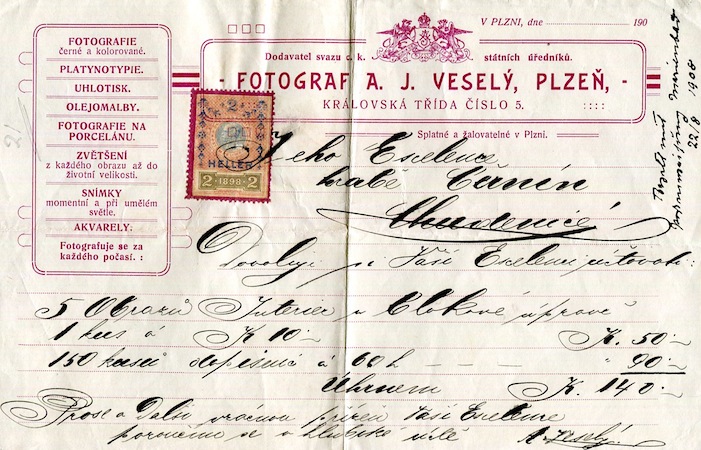 FOTOGRAFIE
černé a kolorované.
PLATYNOTYPIE.
UHLOTISK.
OLEJOMALBY.
FOTOGRAFIE NA
PORCELÁNU.
ZVĚTŠENÍ
z každého obrazu až do
životní velikosti.
SNÍMKY
momentní a při umělém
světle.
AKVARELY.
Fotografuje se za
každého počasí. :
V PLZNI, dne 190
Dodavatel svazu c. k. státních úředníků.
- FOTOGRAF A. J. VESELÝ, PLZEŇ, -
KRÁLOVSKÁ TŘÍDA ČÍSLO 5. ::::
Splatné a žalovatelné v Plzni.
2
HELLER
2 1898 2
Jeho Excelence
hrabě Černín
Chudenice
Dovoluji si Vaší Excelenci účtovati:
5 Obrazů Interieur v Blokové úpravě
1 kus á K 10·- K. 50·-
150 kusů dopisnic á 60 h - - - " 90·-
Úhrnem K. 140·-
Prose o Další vzácnou přízeň Vaší Excelence
poroučím se v hluboké úctě A. Veselý.
Marienbad
22/8 1908